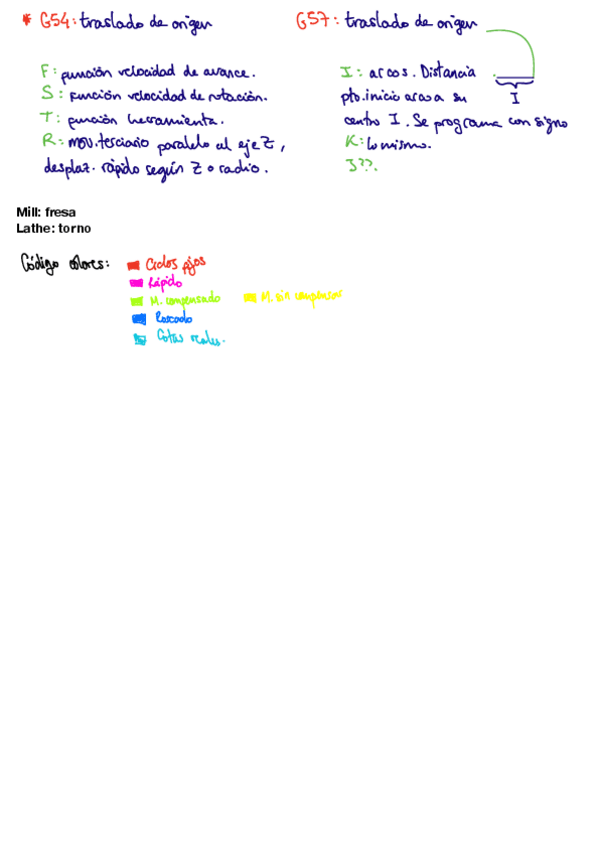 * G54: traslado de origen
G57: traslado de origen
F: función velocidad de avance.
S: función velocidad de rotación.
T: función herramienta.
R: mov. terciario paralelo al eje Z,
desplaz. rápido según Z o radio.
I: arcos. Distancia
pto. inicio arco a su
centro I. Se programa con signo
K: lo mismo.
J??.
I
Mill: fresa
Lathe: torno
Código colores:
Ciclos fijos
Rápido
M. compensado
M. sin compensar
Roscado
Cotas reales.